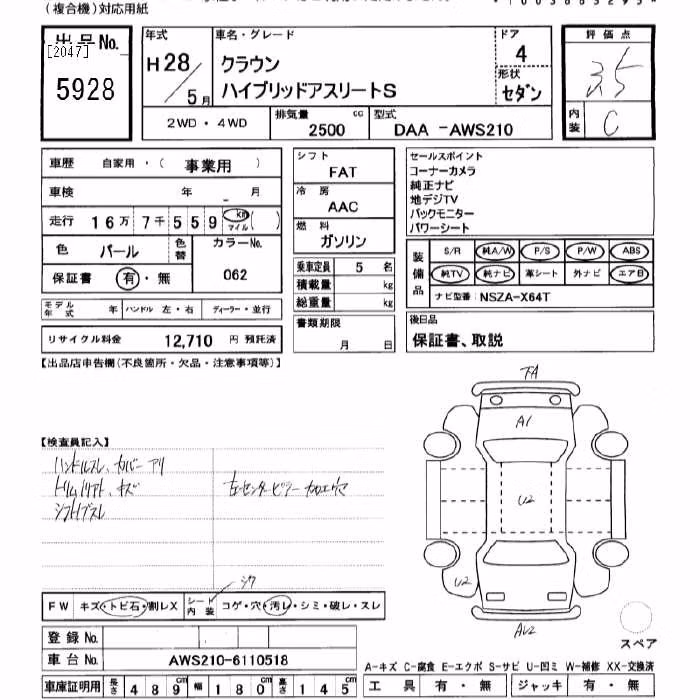 (複合機)対応用紙
出品No. [2047] 5928
年式 H28/5月
車名・グレード クラウン ハイブリッドアスリートS
ドア 4
形状 セダン
評価点 3.5
内装 C
2WD・4WD
排気量 2500 cc
型式 DAA -AWS210
車歴 自家用・( 事業用 )
車検 年 - 月
走行 16万7千559 km マイル ( )
色 パール
色替
カラーNo. 062
保証書 有・無
モデル年式 年
ハンドル 左・右
ディーラー・並行
リサイクル料金 12,710 円 預託済
シフト FAT
冷房 AAC
燃料 ガソリン
乗車定員 5 名
積載量 kg
総重量 kg
書類期限 月 日
セールスポイント
コーナーカメラ
純正ナビ
地デジTV
バックモニター
パワーシート
装備品 S/R 純A/W P/S P/W ABS
純TV 純ナビ 革シート 外ナビ エアB
ナビ型番 NSZA-X64T
後日品
保証書、取説
【出品店申告欄(不良箇所・欠品・注意事項等)】
【検査員記入】
ハンドルスレ、カバーアリ
キズ
シフトノブスレ
左センターピラー加工穴
下A
A1
U2
U2
AU2
スペア
FW キズ・トビ石・割レX
シート内装 コゲ・穴・汚レ・シミ・破レ・スレ
シワ
登録No.
車台No. AWS210-6110518
車庫証明用 長さ 489cm 幅 180cm 高さ 145cm
A-キズ C-腐食 E-エクボ S-サビ U-凹ミ W-補修 XX-交換済
工具 有・無 ジャッキ 有・無